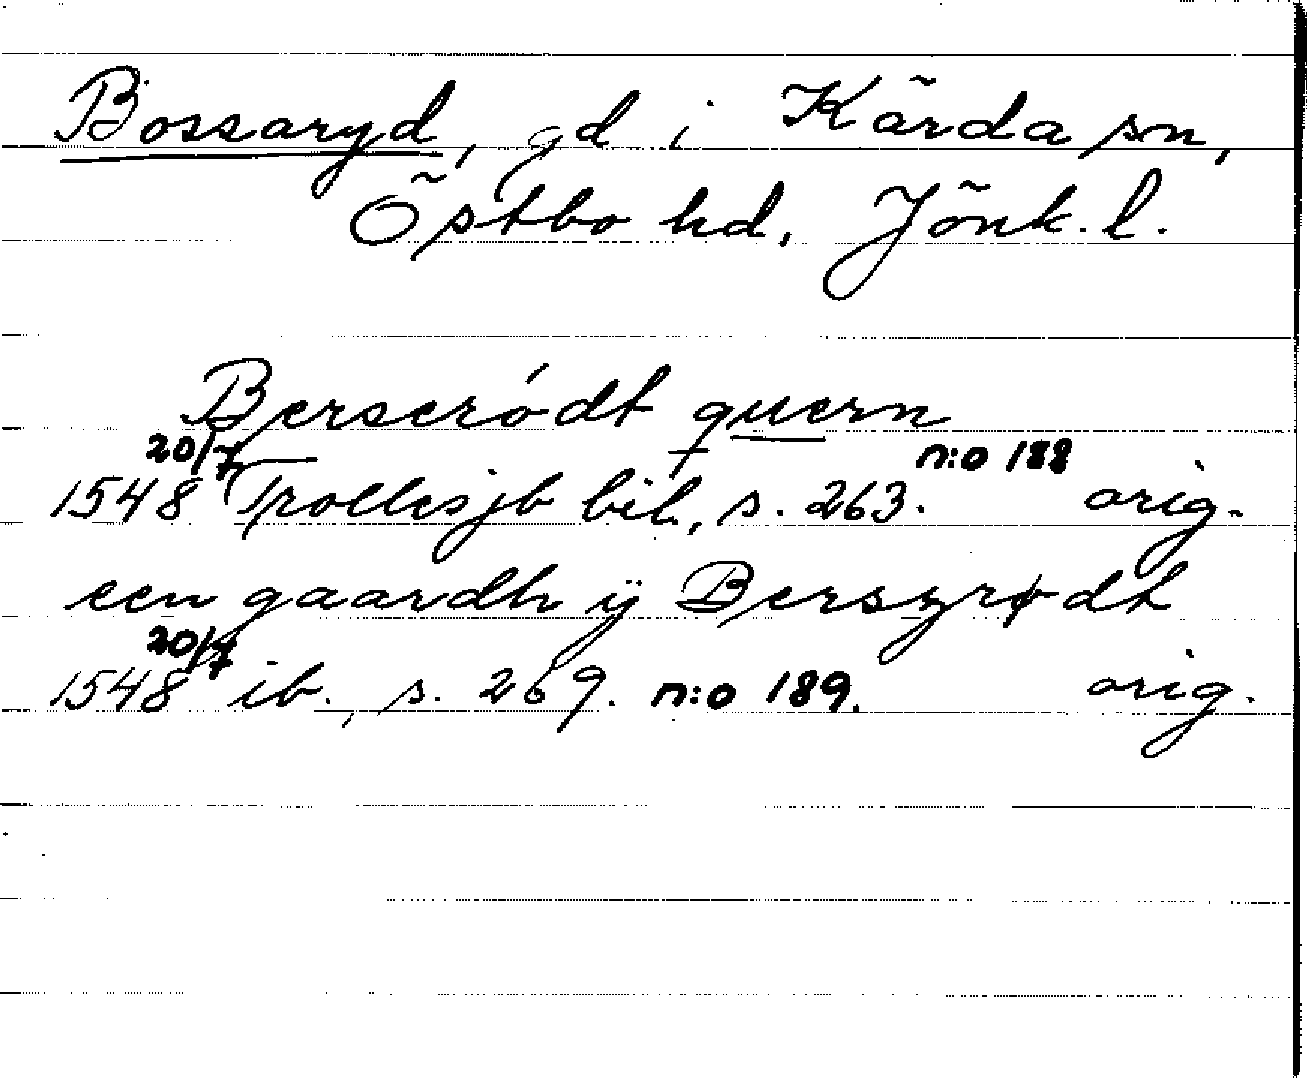 Bossaryd, gd i Kärda sn,
Östbo hd, Jönk. l.
Berseródt quern
20/7 n:o 188
1548 Trollesjb bil., s. 263. orig.
een gaardh ÿ Berszrødt
20/7
1548 ib., s. 269. n:o 189. orig.